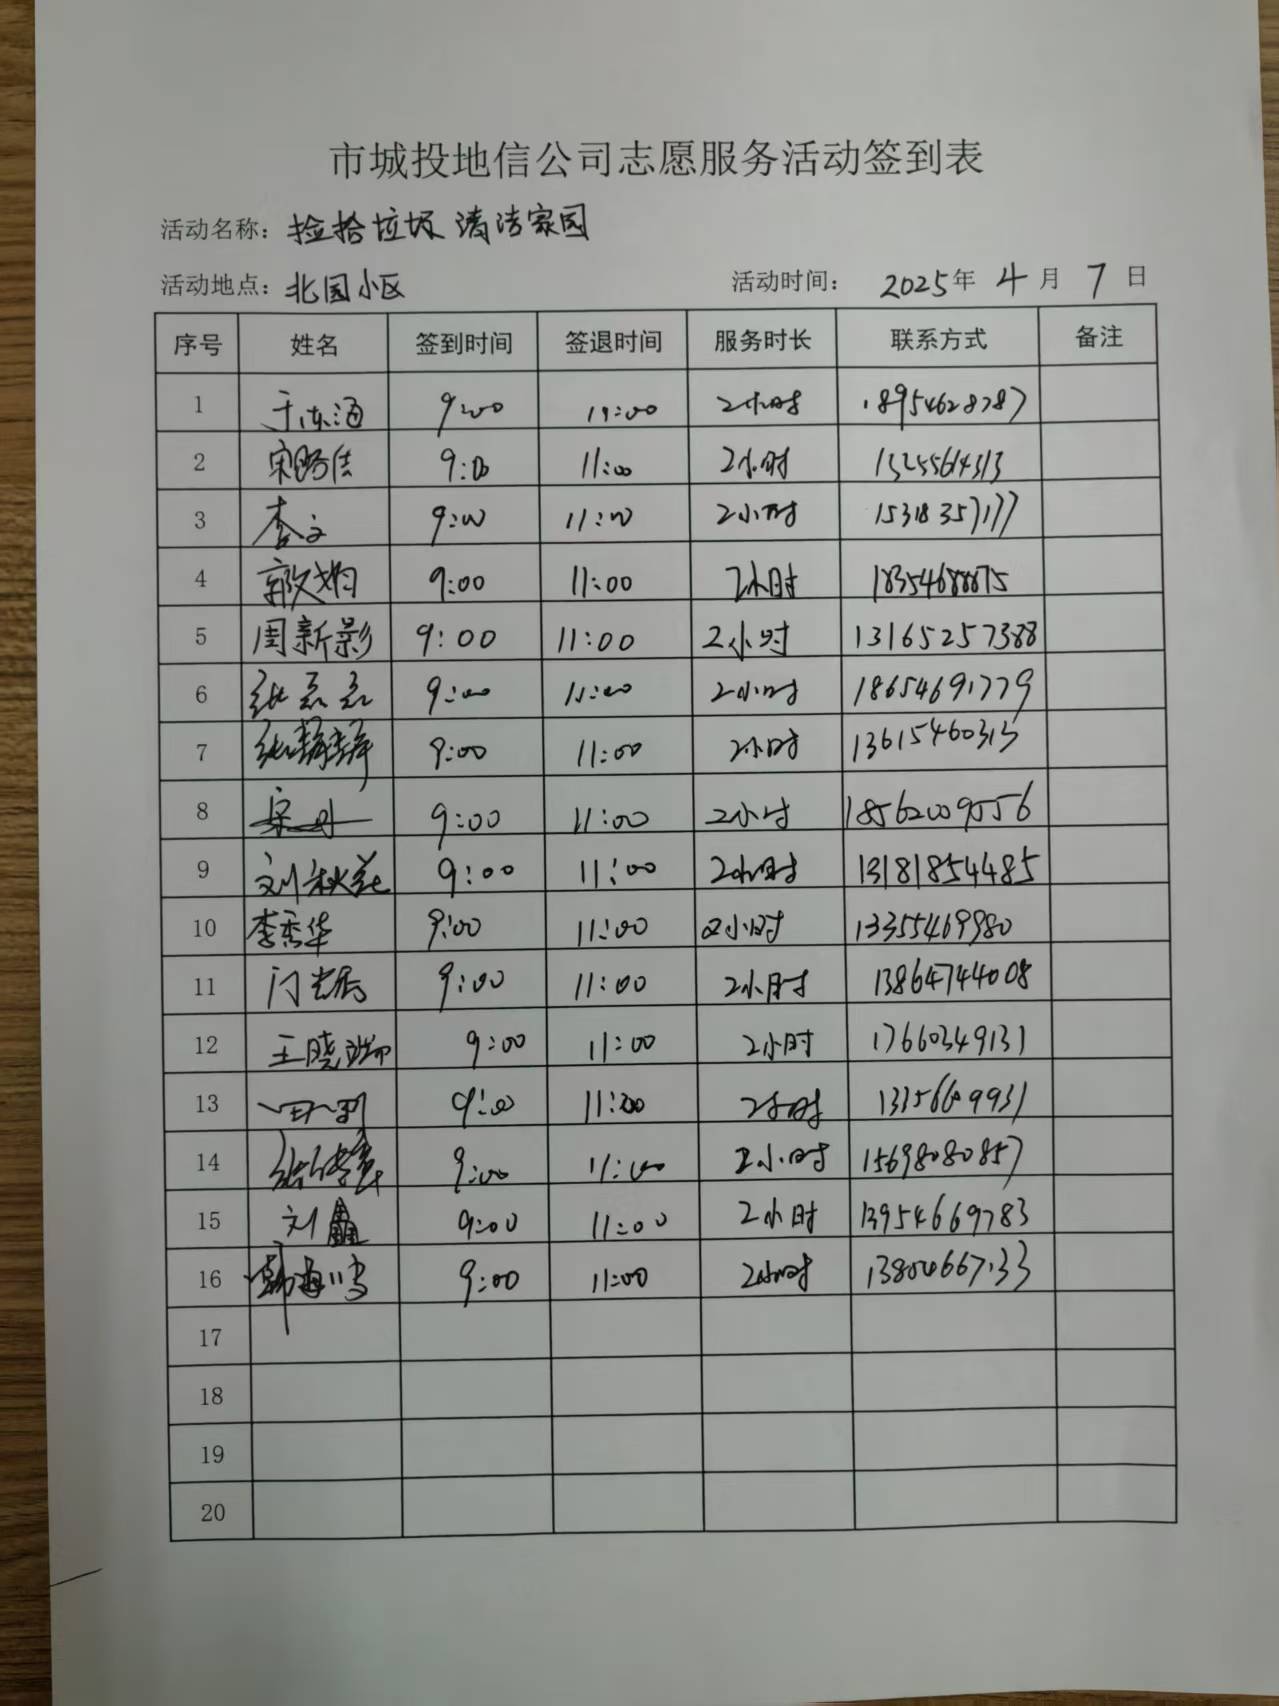 市城投地信公司志愿服务活动签到表
活动名称：捡拾垃圾 清洁家园
活动地点：北国小区 活动时间：2025年 4月 7日
序号 姓名 签到时间 签退时间 服务时长 联系方式 备注
1 于海 9:00 11:00 2小时 18954628787
2 宋 佳 9:00 11:00 2小时
3 李文 9:00 11:00 2小时 15318357177
4 郭文娟 9:00 11:00 2小时 18354688875
5 周新影 9:00 11:00 2小时 13165257388
6 张磊磊 9:00 11:00 2小时 18654691779
7 张静静 9:00 11:00 2小时 13615460313
8 宋丹 9:00 11:00 2小时 18562009556
9 刘秋菊 9:00 11:00 2小时 13181854485
10 李秀华 9:00 11:00 2小时 13355469980
11 门 9:00 11:00 2小时 13864744008
12 王晓瑞 9:00 11:00 2小时 17660349131
13 9:00 11:00 2小时
14 张 9:00 11:00 2小时 15698080857
15 刘鑫 9:00 11:00 2小时 13954669783
16 韩海鸣 9:00 11:00 2小时 13804667133
17
18
19
20